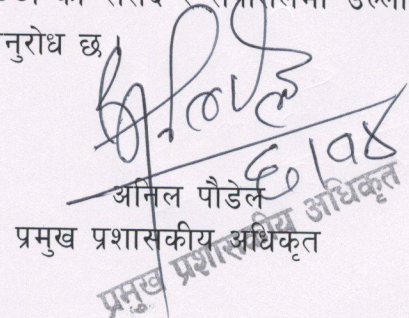 नुरोध छ।
६।१४
अनिल पौडेल
प्रमुख प्रशासकीय अधिकृत
प्रमुख प्रशासकीय अधिकृत